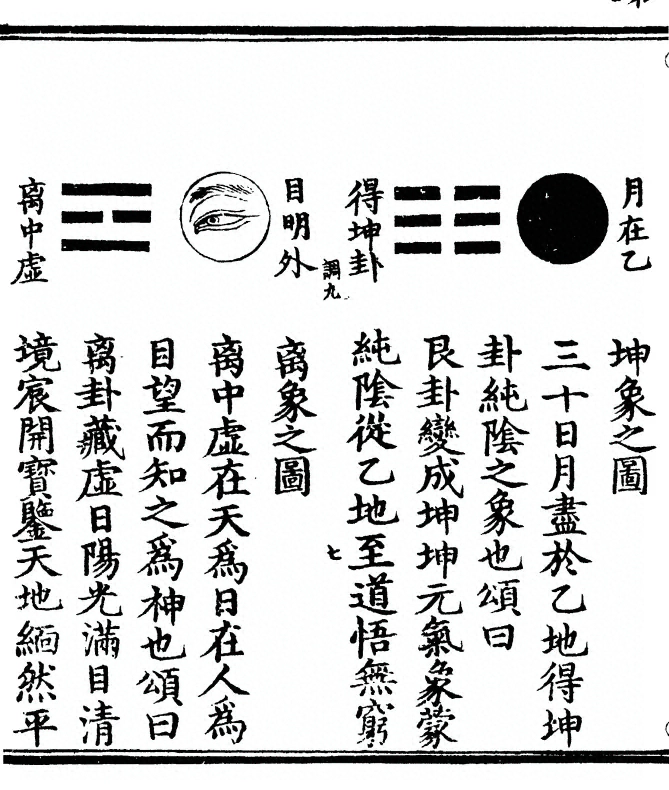 月在乙
得坤卦
坤象之圖
三十日月盡於乙地得坤
卦純陰之象也頌曰
艮卦變成坤坤元氣象蒙
純陰從乙地至道悟無窮
調九
七
目明外
离中虛
离象之圖
离中虛在天為日在人為
目望而知之為神也頌曰
离卦藏虛日陽光滿目清
境宸開寶鑒天地緬然平